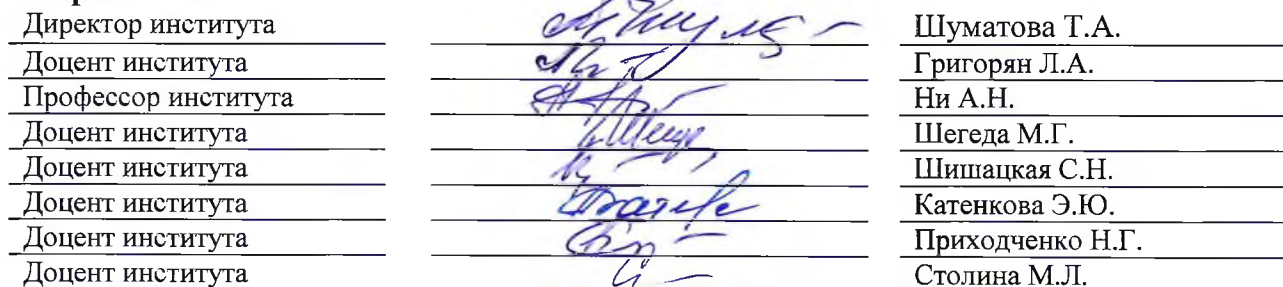 Директор института Шуматова Т.А.
Доцент института Григорян Л.А.
Профессор института Ни А.Н.
Доцент института Шегеда М.Г.
Доцент института Шишацкая С.Н.
Доцент института Катенкова Э.Ю.
Доцент института Приходченко Н.Г.
Доцент института Столина М.Л.